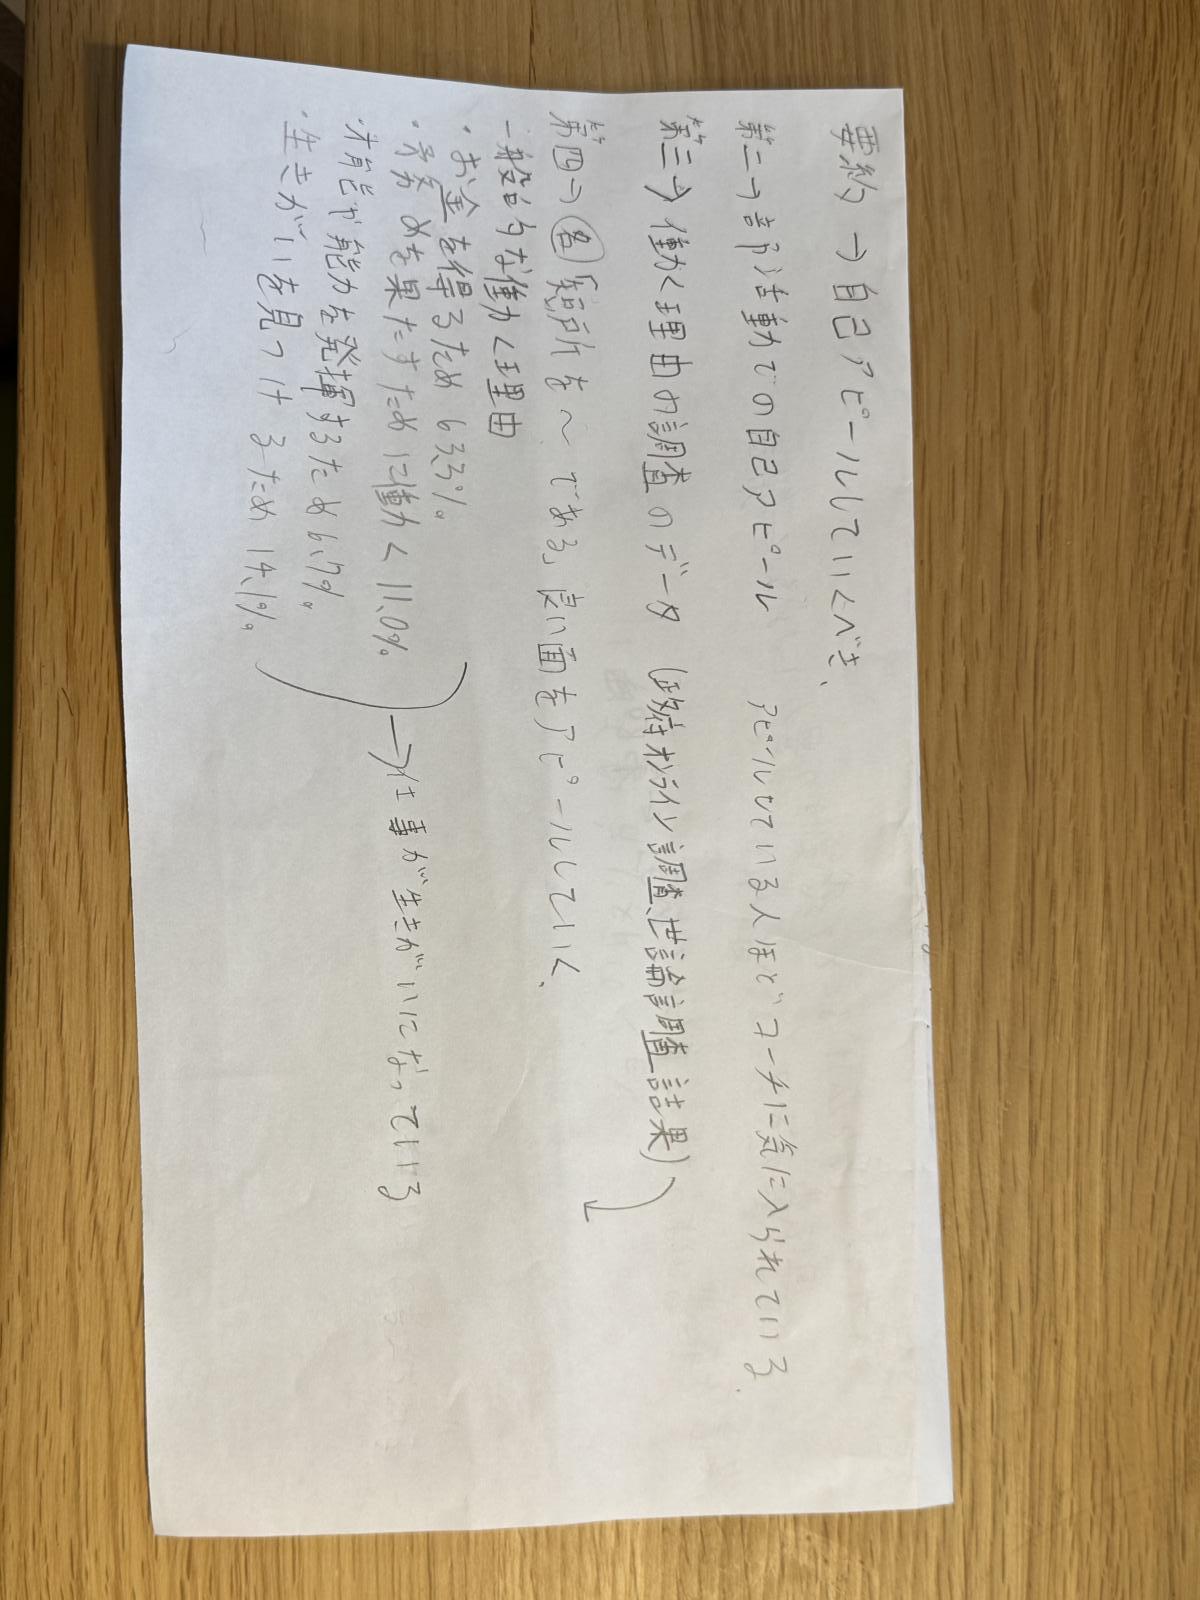 要約→自己アピールしていくべき、
第二→部活動での自己アピール アピールしている人ほどコーチに気に入られている
第三→働く理由の調査のデータ(政府オンライン調査、世論調査結果)
第四→名「短所を〜である」良い面をアピールしていく、
一般的な働く理由
・お金を得るため 63.3%
・務めを果たすために働く 11.0%
・才能や能力を発揮するため 6.7%
・生きがいを見つけるため 14.1%
→仕事が生きがいになっている